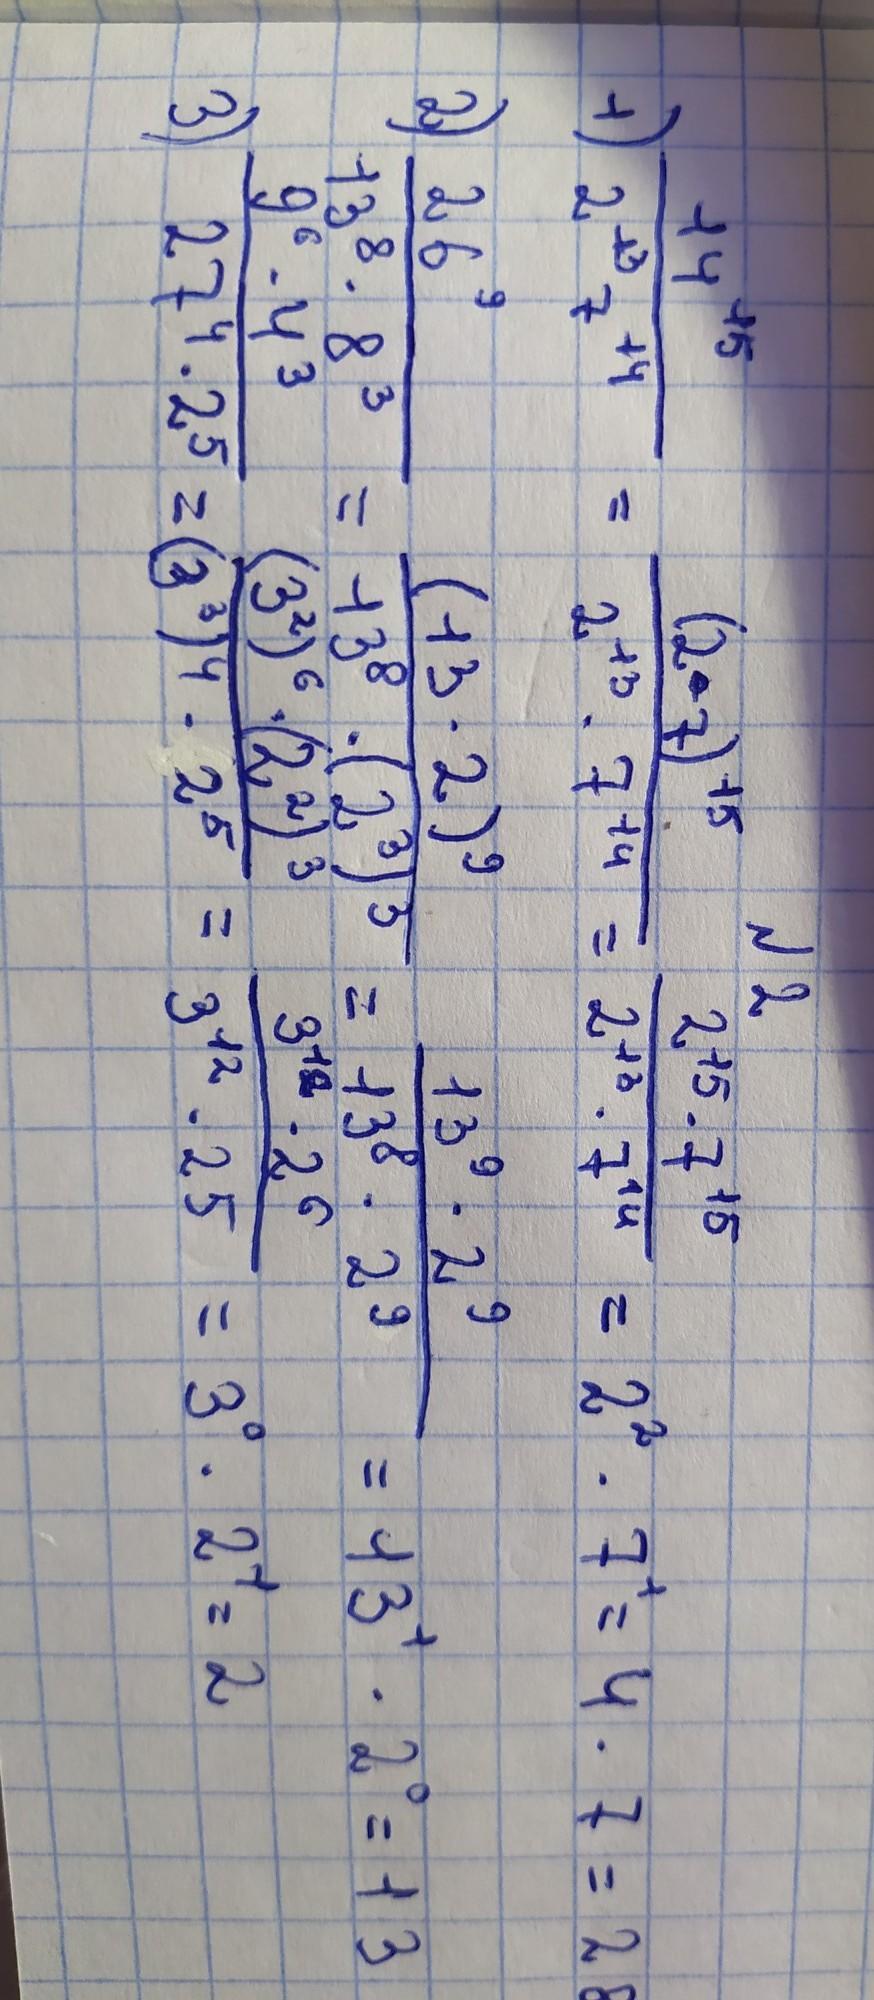 №2
1) 14^15 / 2^13 7^14 = (2·7)^15 / 2^13 · 7^14 = 2^15 · 7^15 / 2^13 · 7^14 = 2^2 · 7^1 = 4 · 7 = 28
2) 26^9 / 13^8 · 8^3 = (13 · 2)^9 / 13^8 · (2^3)^3 = 13^9 · 2^9 / 13^8 · 2^9 = 13^1 · 2^0 = 13
3) 9^6 · 4^3 / 27^4 · 2^5 = (3^2)^6 · (2^2)^3 / (3^3)^4 · 2^5 = 3^12 · 2^6 / 3^12 · 25 = 3^0 · 2^1 = 2